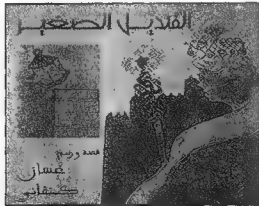 القنديل الصغير
قصة ورسوم
غسان
كنفاني